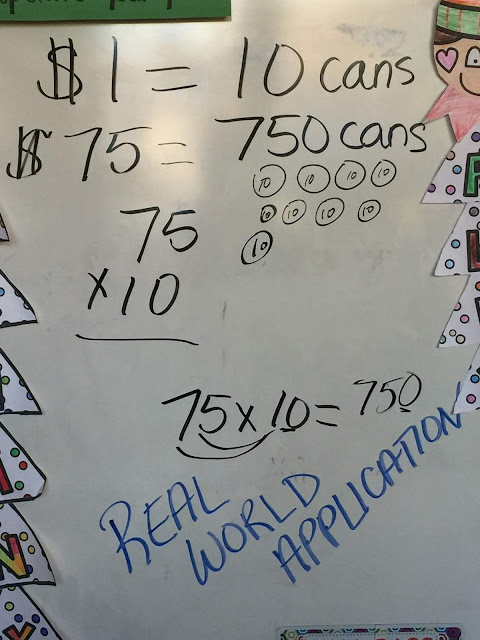 $1 = 10 cans
$75 = 750 cans
10 10 10 10
10 10 10 10
10
75
×10
75×10=750
REAL
WORLD
APPLICATION